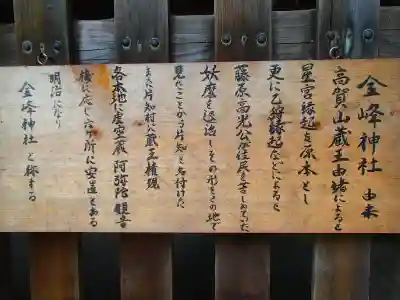 金峰神社 由来
高賀山蔵王由緒によると
星宮縁起を原本とし
更に乙狩縁起などによると
藤原高光公が住民を苦しめていた
妖魔を退治しその形をこの地で
見たことから片知と名付けた
また片知村に蔵王権現
各本地に虚空蔵 阿弥陀 観音
後に応じ六ケ所に安置とある
明治になり
金峰神社と称する